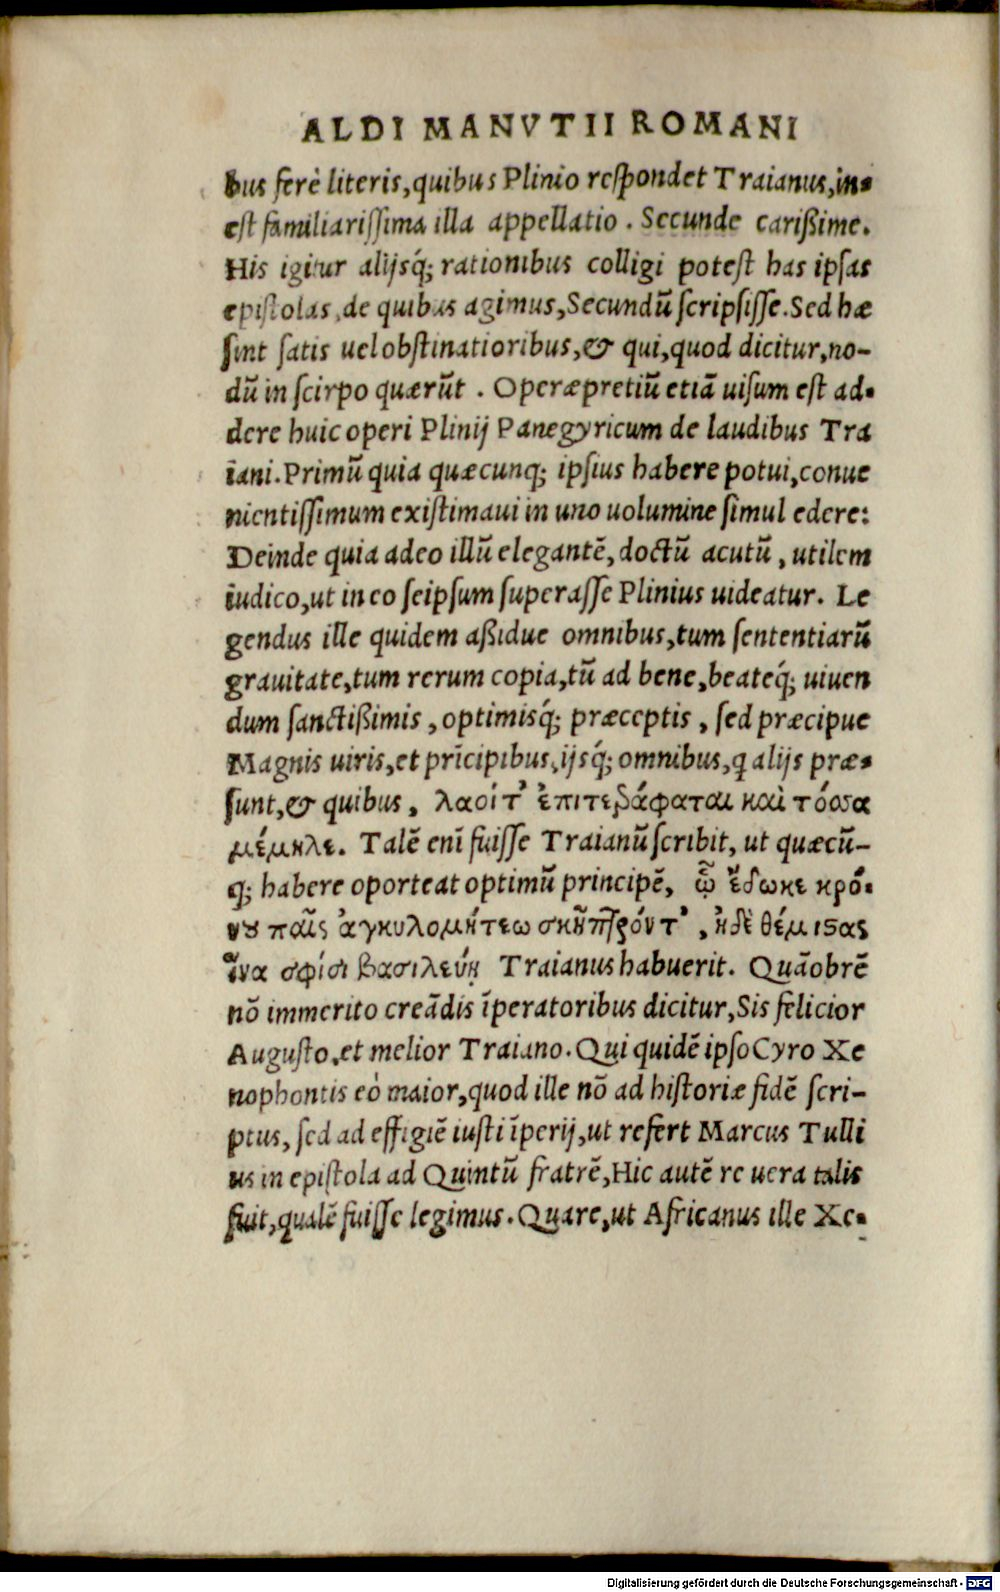 ALDI MANVTII ROMANI
bus ferè literis, quibus Plinio respondet Traianus, in-
est familiarissima illa appellatio. Secunde carißime.
His igitur alijsq́; rationibus colligi potest has ipsas
epistolas, de quibus agimus, Secundũ scripsisse. Sed hæ
sint satis uel obstinatioribus, & qui, quod dicitur, no-
dũ in scirpo quærũt. Operæpretiũ etiã uisum est ad-
dere huic operi Plinij Panegyricum de laudibus Tra
iani. Primũ quia quæcunq; ipsius habere potui, conue
nientissimum existimaui in uno uolumine simul edere:
Deinde quia adeo illũ elegantẽ, doctũ acutũ, utilem
iudico, ut in eo seipsum superasse Plinius uideatur. Le
gendus ille quidem aßidue omnibus, tum sententiarũ
grauitate, tum rerum copia, tũ ad bene, beateq́; uiuen
dum sanctißimis, optimisq́; præceptis, sed præcipue
Magnis uiris, et prĩcipibus, ijsq́; omnibus, q alijs præ-
sunt, & quibus, λαοίτ' ἐπιτετράφαται καὶ τόσσα
μέμηλε. Talẽ enĩ fuisse Traianũ scribit, ut quæcũ-
q; habere oporteat optimũ principẽ, ᾧ ἔδωκε κρό-
νου παῖς ἀγκυλομήτεω σκῆπτρόν τ', ἠδὲ θέμιστας
ἵνα σφίσι βασιλεύῃ Traianus habuerit. Quãobrẽ
nõ immerito creãdis ĩperatoribus dicitur, Sis felicior
Augusto, et melior Traiano. Qui quidẽ ipso Cyro Xe
nophontis eò maior, quod ille nõ ad historiæ fidẽ scri-
ptus, sed ad effigiẽ iusti ĩperij, ut refert Marcus Tulli
us in epistola ad Quintũ fratrẽ, Hic autẽ re uera talis
fuit, qualẽ fuisse legimus. Quare, ut Africanus ille Xe-
Digitalisierung gefördert durch die Deutsche Forschungsgemeinschaft - DFG